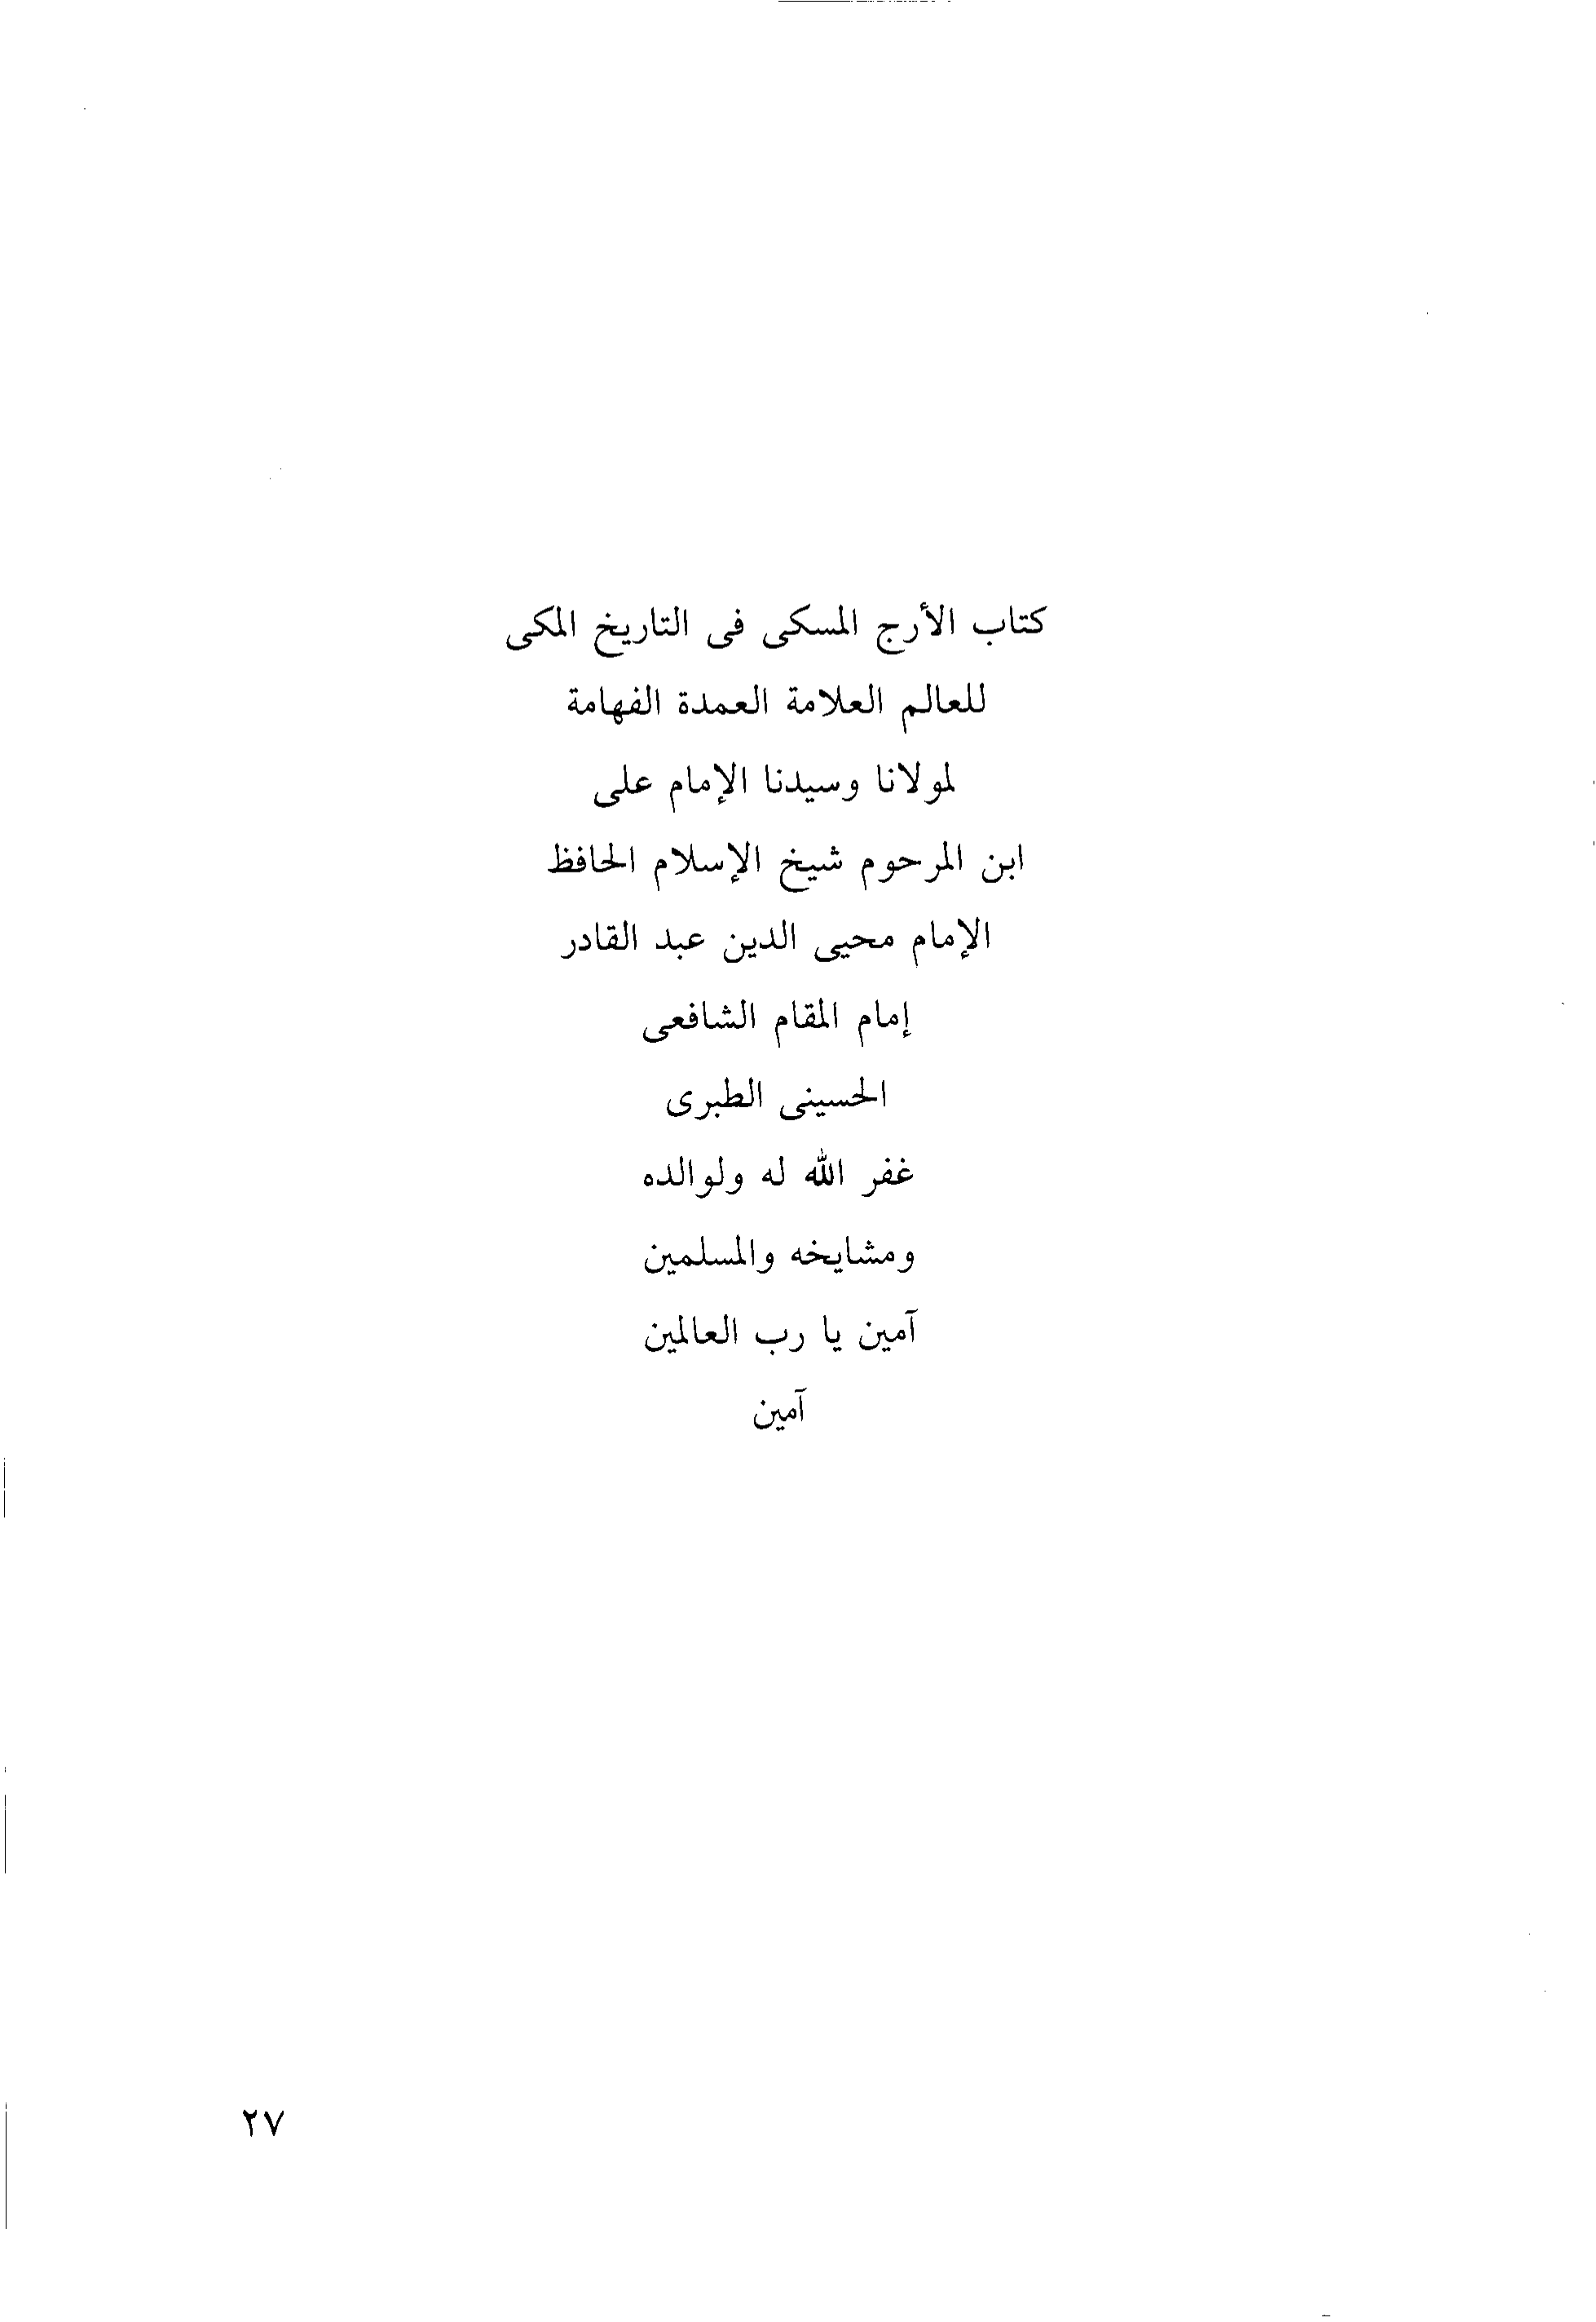 كتاب الأرج المسكى فى التاريخ المكى
للعالم العلامة العمدة الفهامة
لمولانا وسيدنا الإمام على
ابن المرحوم شيخ الإسلام الحافظ
الإمام محيى الدين عبد القادر
إمام المقام الشافعى
الحسينى الطبرى
غفر الله له ولوالده
ومشايخه والمسلمين
آمين يا رب العالمين
آمين
٢٧